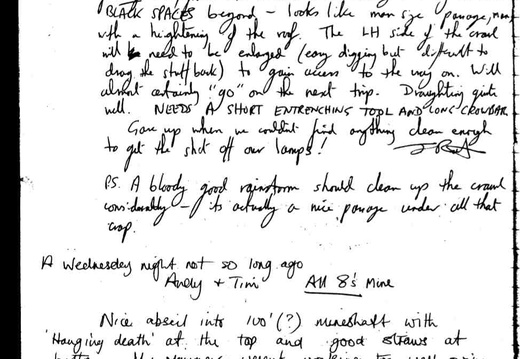 BLACK SPACES beyond - looks like man size passage, now
with a heightening of the roof. The LH side of the crawl
will need to be enlarged (easy digging but difficult to
drag the stuff back) to gain access to the way on. Will
almost certainly "go" on the next trip. Draughting quite
well. NEEDS A SHORT ENTRENCHING TOOL AND LONG CROWBAR
Gave up when we couldn't find anything clean enough
to get the shit off our lamps!
P.S. A bloody good rainstorm should clean up the crawl
considerably - its actually a nice passage under all that
crap.
A Wednesday night not so long ago
Andy + Tim All 8's Mine
Nice abseil into 100'(?) mineshaft with
'Hanging death' at the top and good straws at